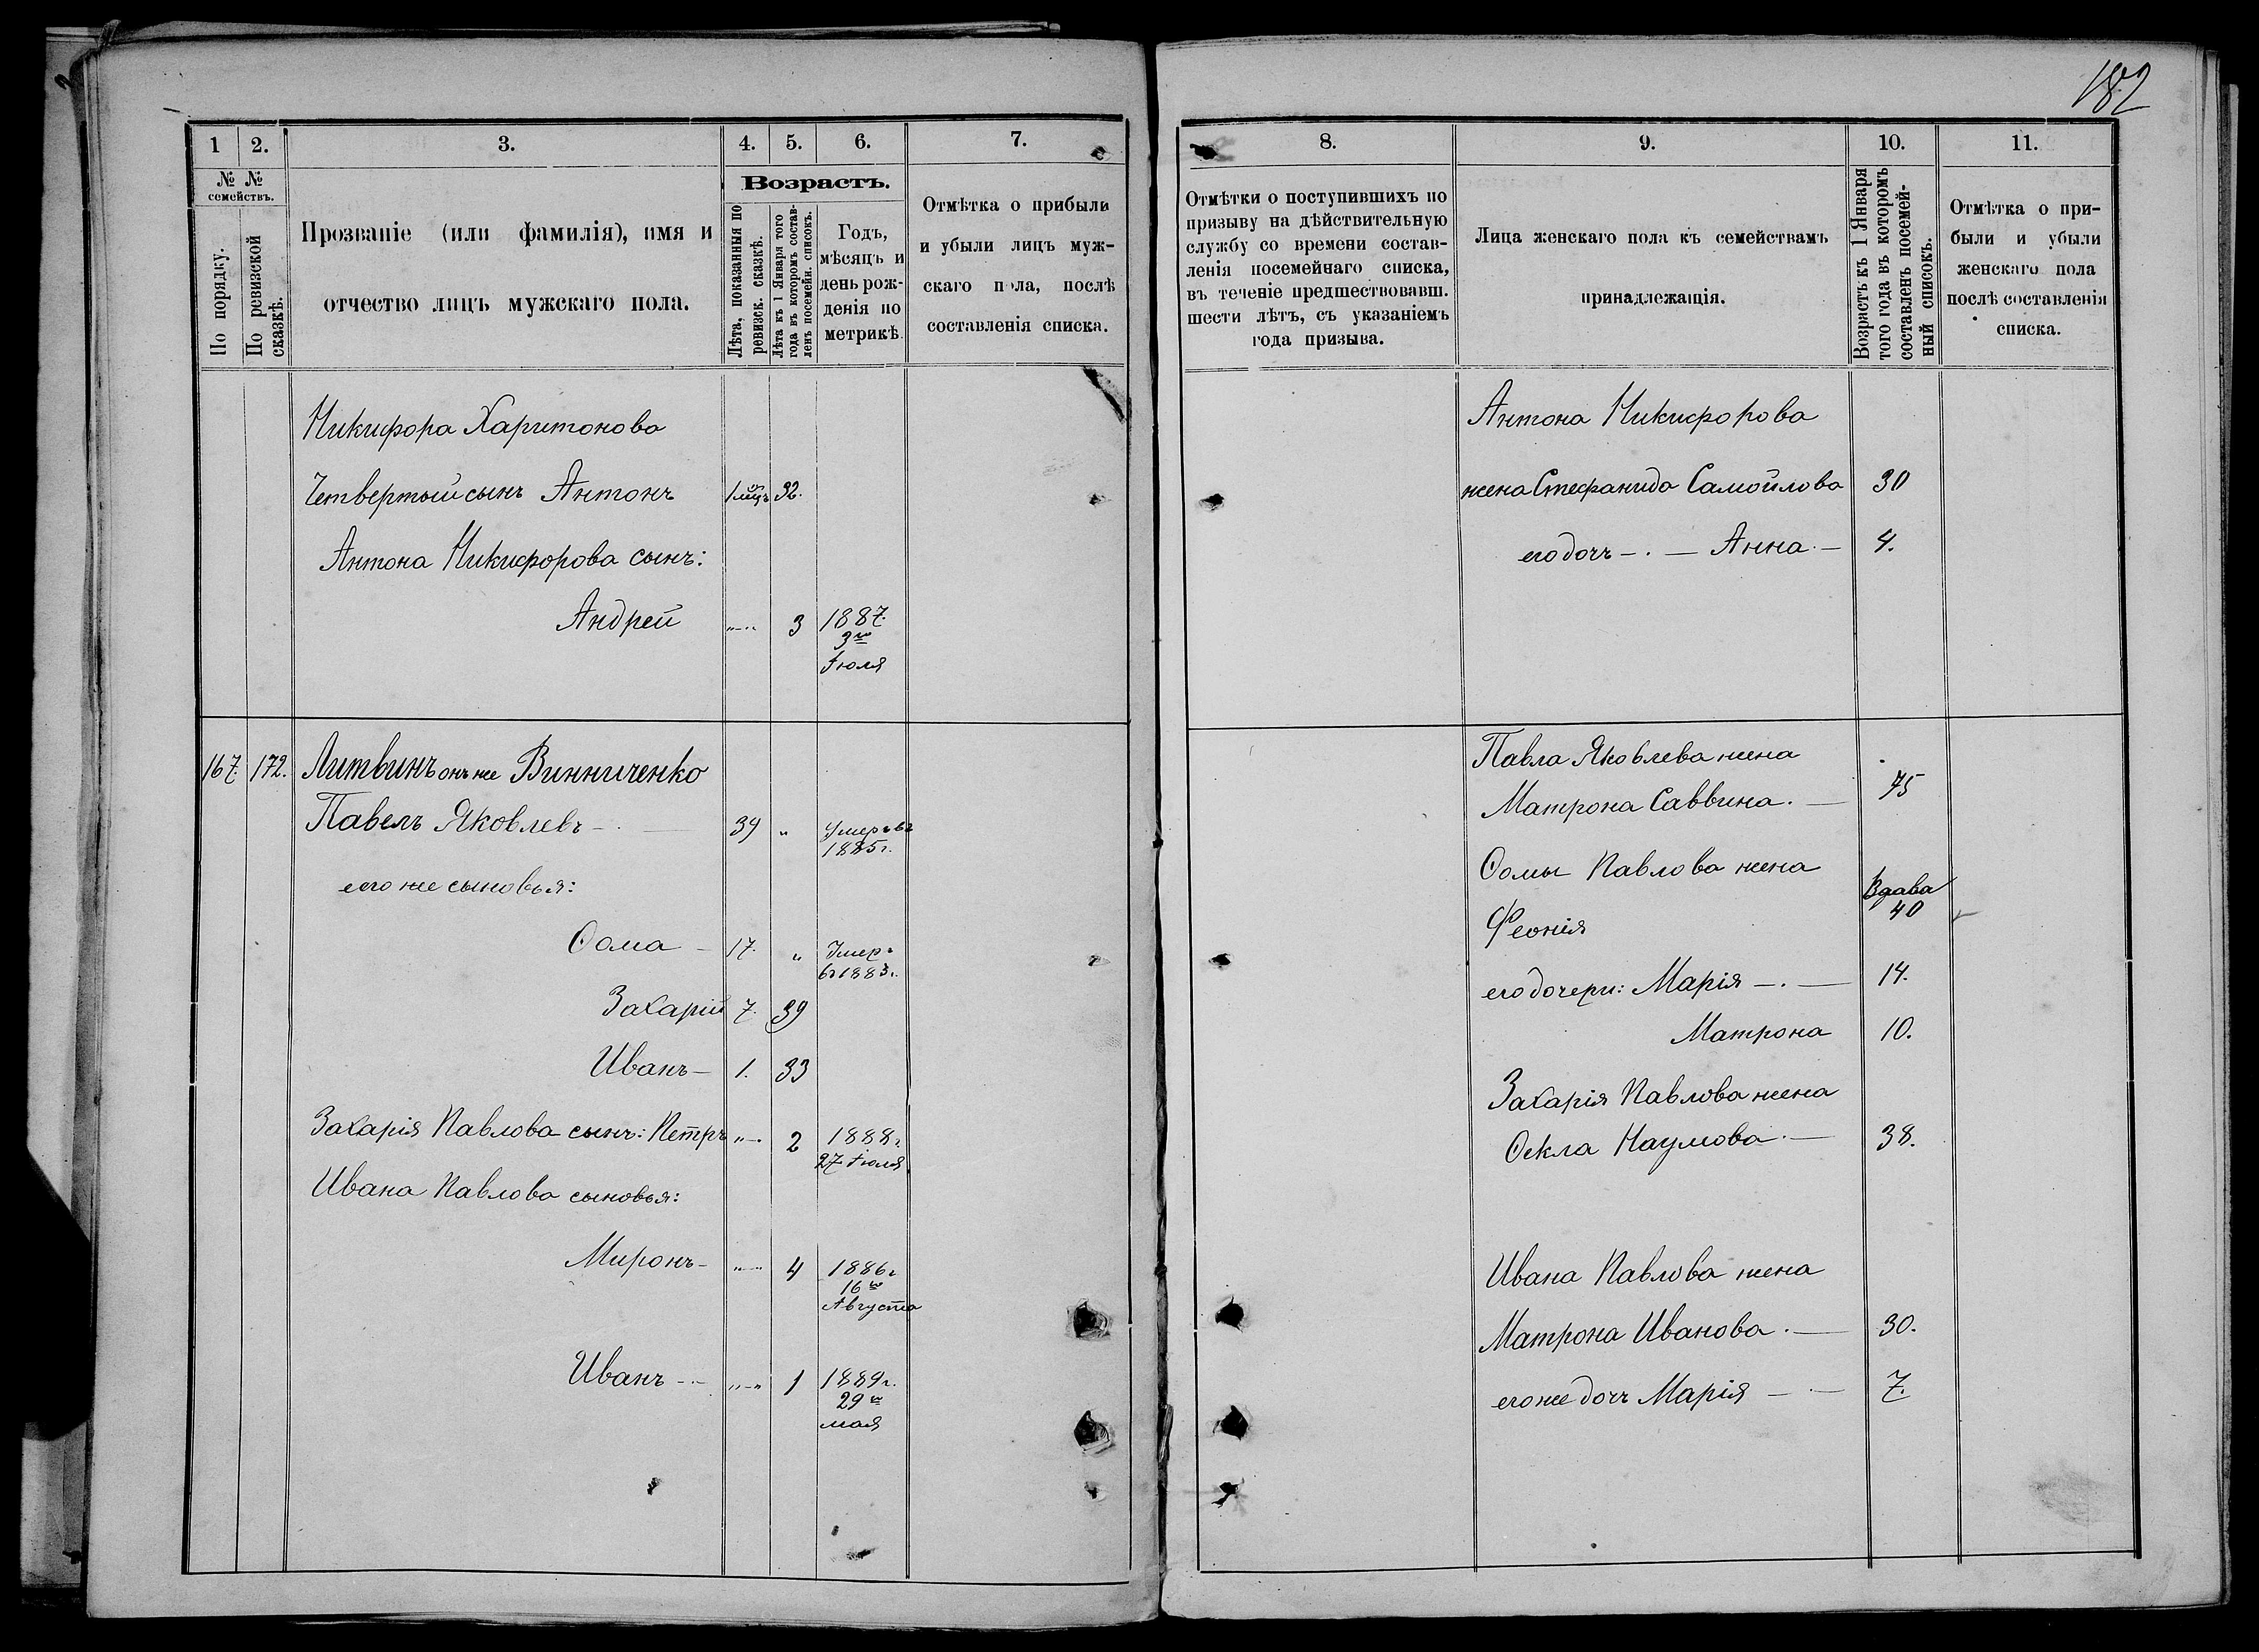 182
1 2. 3. 4. 5. 6. 7.
№ № семействъ.
По порядку.
По ревизской сказкѣ.
Прозваніе (или фамилія), имя и
отчество лицъ мужскаго пола.
Возрастъ.
Лѣта, показанныя по
ревизск. сказкѣ.
Лѣта къ 1 Января того
года въ которомъ состав-
ленъ посемейн. списокъ.
Годъ,
мѣсяцъ и
день рож-
денія по
метрикѣ.
Отмѣтка о прибыли
и убыли лицъ муж-
скаго пола, послѣ
составленія списка.
Никифора Харитонова
Четвертый сынъ Антонъ 32.
Антона Никифорова сынъ:
Андрей „—„ 3 1887.
3го
Іюля
167. 172. Литвинъ онъ же Винниченко
Павелъ Яковлевъ — 39 „ Умеръ въ
1885 г.
его же сыновья:
Ѳома — 17. „ Умеръ
въ 1883 г.
Захарій 7. 39
Иванъ — 1. 33
Захарія Павлова сынъ: Петръ „—. 2 1888 г.
27 Іюля
Ивана Павлова сыновья:
Миронъ — „—„ 4 1886 г
16го
Августа
Иванъ — „—„ 1 1889 г.
29го
мая
8. 9. 10. 11.
Отмѣтки о поступившихъ по
призыву на дѣйствительную
службу со времени состав-
ленія посемейнаго списка,
въ теченіе предшествовавш.
шести лѣтъ, съ указаніемъ
года призыва.
Лица женскаго пола къ семействамъ
принадлежащія.
Возрастъ къ 1 Января
того года въ которомъ
составленъ посемей-
ный списокъ.
Отмѣтка о при-
были и убыли
женскаго пола
послѣ составленія
списка.
Антона Никифорова
жена Стефанида Самойлова 30
его дочь —.— Анна. — 4.
Павла Яковлева жена
Матрона Саввина. — 75
Ѳомы Павлова жена
Вдава
Феонія 40
его дочери: Марія —.— 14.
Матрона 10.
Захарія Павлова жена
Ѳекла Наумова. — 38.
Ивана Павлова жена
Матрона Иванова. — 30.
его же дочь Марія — — 7.